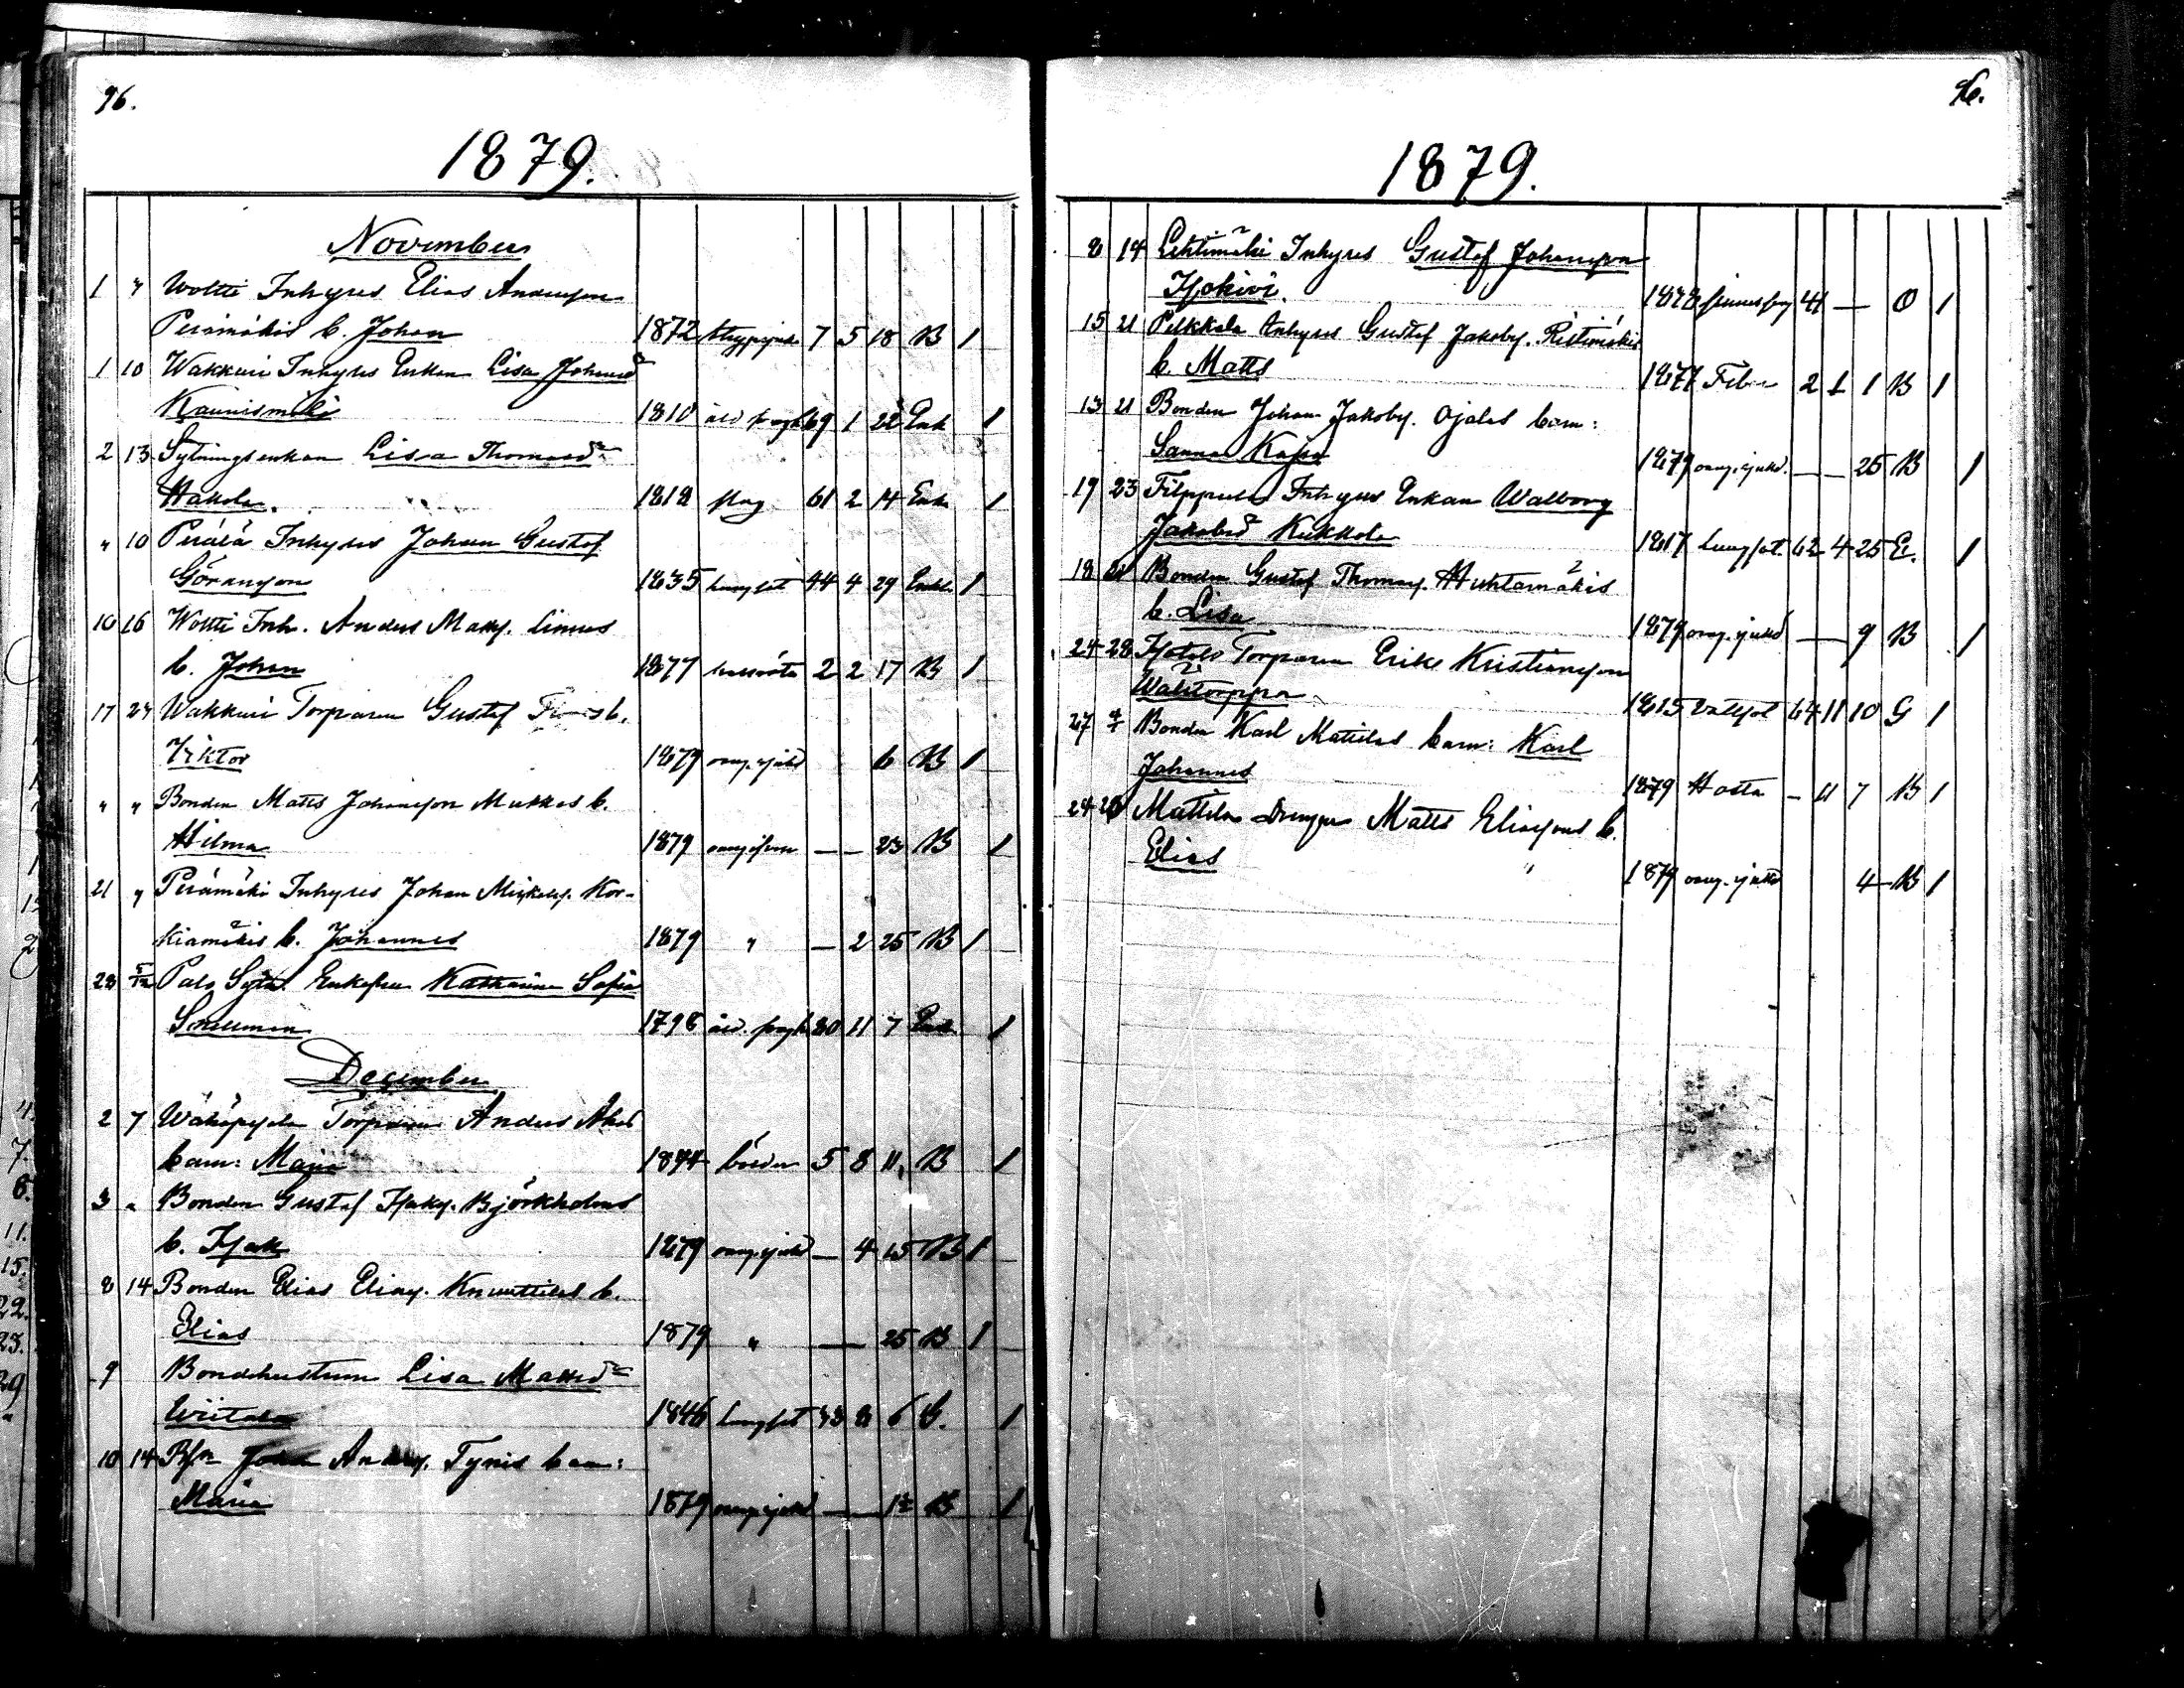 96.
1879.
November
1 " Woltti Inhyses Elias Andersson
Perämäkis b. Johan 1872 strypsjuk 7 5 18 B 1
1 10 Wakkuri Inhyses Enkan Lisa Johansdr
Kaunismäki 1810 åld. 69 1 22 Enk 1
2 13 Sytningsenkan Lisa Thomasdr
Hakola. 1818 slag 61 2 14 Enk 1
" 10 Perälä Inhyses Johan Gustaf
Göransson 1835 lungsot 44 4 29 Enkl. 1
10 16 Woltti Inh. Anders Matts. Linnas
b. Johan 1877 2 2 17 B 1
17 23 Wakkuri Torparen Gustaf b.
Viktor 1879 oang. sjukd 6 B 1
" " Bonden Matts Johansson Mukkas b.
Hilma 1879 — — 23 B 1
21 " Perämäki Inhyses Johan Mickels. Kor-
kiamäkis b. Johannes 1879 " — 2 25 B 1
28 5/12 Palo Sytn. Enkefru Katharina Sofia
1798 åld. 80 11 7 Enk 1
December
2 7 Torparen Anders Åkas
barn: Maja 1874 5 8 11 B 1
3 " Bonden Gustaf Isaks. Björkholms
b. Isak 1879 oang. sjukd — 4 15 B 1
8 14 Bonden Elias Elias. Knuuttilas b.
Elias 1879 " — 25 B 1
9 Bondehustrun Lisa Mattsdr
Wiitala 1846 lungsot 33 8 6 G. 1
10 14 Bn Johan Anders. Tynis barn:
Maria 1879 oang. sjukd — — B 1
96.
1879.
8 14 Lehtimäki Inhyses Gustaf Johansson
Isokivi. 1878 41 — O 1
15 21 Pelkkala Inhyses Gustaf Jakobs. Ristimäkis
b. Matts 1877 Feber 2 1 1 B 1
13 21 Bonden Johan Jakobs. Ojalas barn:
Sanna Kajsa 1879 oang. sjukd. — — 25 B 1
19 23 Filppula Inhyses Enkan Walborg
Jakobsdr Kukkola 1817 Lungsot 62 4 25 E. 1
18 21 Bonden Gustaf Thomas. Huhtamäkis
b. Lisa 1879 oang. sjukd — 9 B 1
24 28 Torparen Erik Kristiansson
Walitorppa 1815 Vattsot 64 11 10 G 1
27 Bonden Karl Mattilas barn: Karl
Johannes 1879 Hosta — 11 7 B 1
24 28 Mattila Drengen Matts Eliassons b.
Elias 1879 oang. sjukd 4 B 1